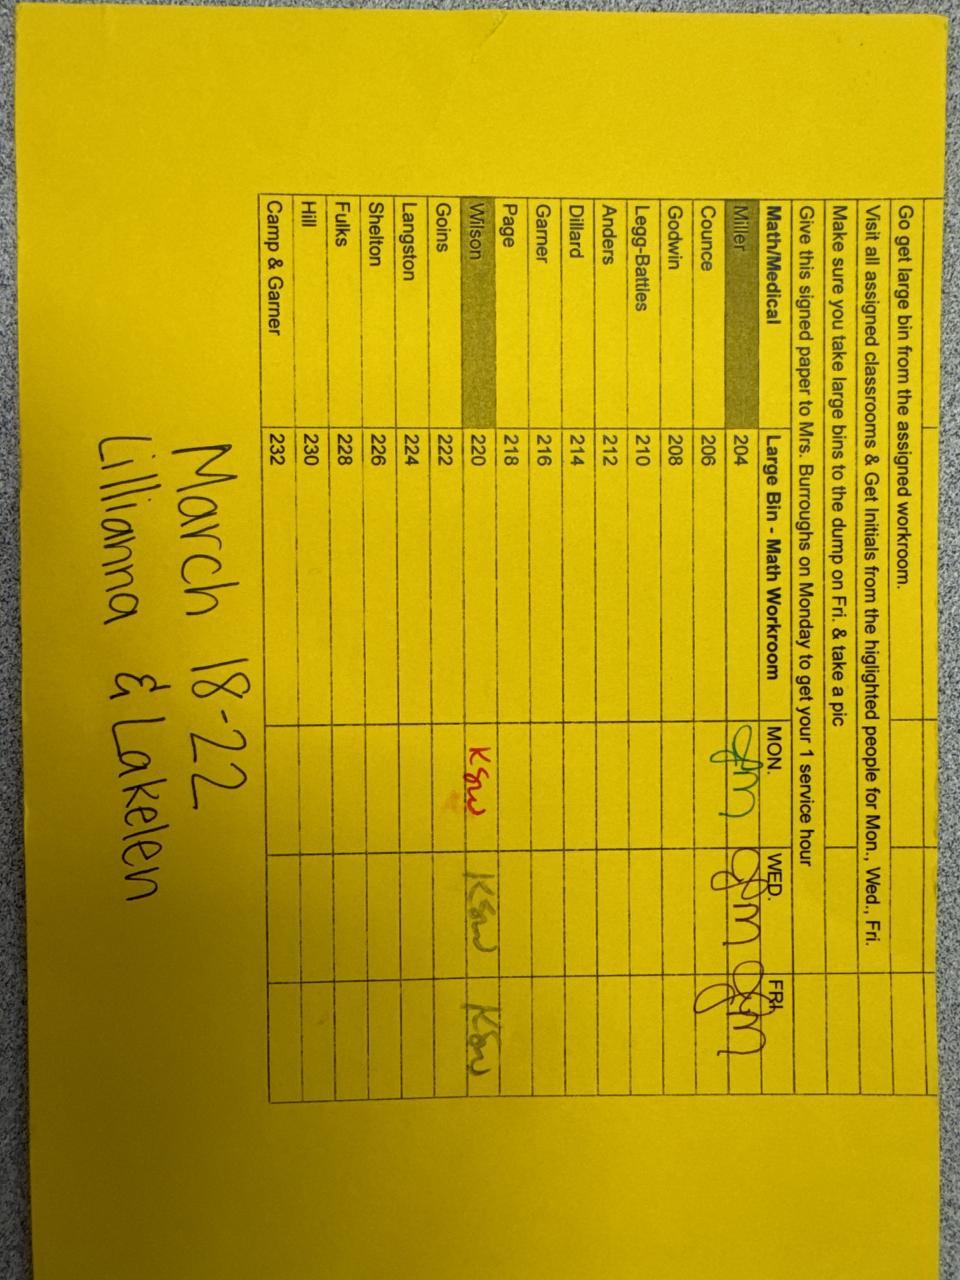 Go get large bin from the assigned workroom.
Visit all assigned classrooms & Get Initials from the higlighted people for Mon., Wed., Fri.
Make sure you take large bins to the dump on Fri. & take a pic
Give this signed paper to Mrs. Burroughs on Monday to get your 1 service hour
Math/Medical Large Bin - Math Workroom MON. WED. FRI.
Miller 204
Counce 206
Godwin 208
Legg-Battles 210
Anders 212
Dillard 214
Garner 216
Page 218
Wilson 220 KSW KSW KSW
Goins 222
Langston 224
Shelton 226
Fulks 228
Hill 230
Camp & Garner 232
March 18-22
Lillianna & Lakelen